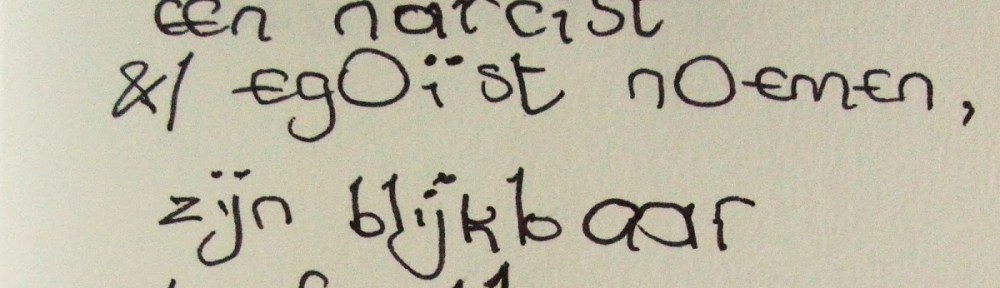 een narcist
&/ egoïst noemen,
zijn blijkbaar